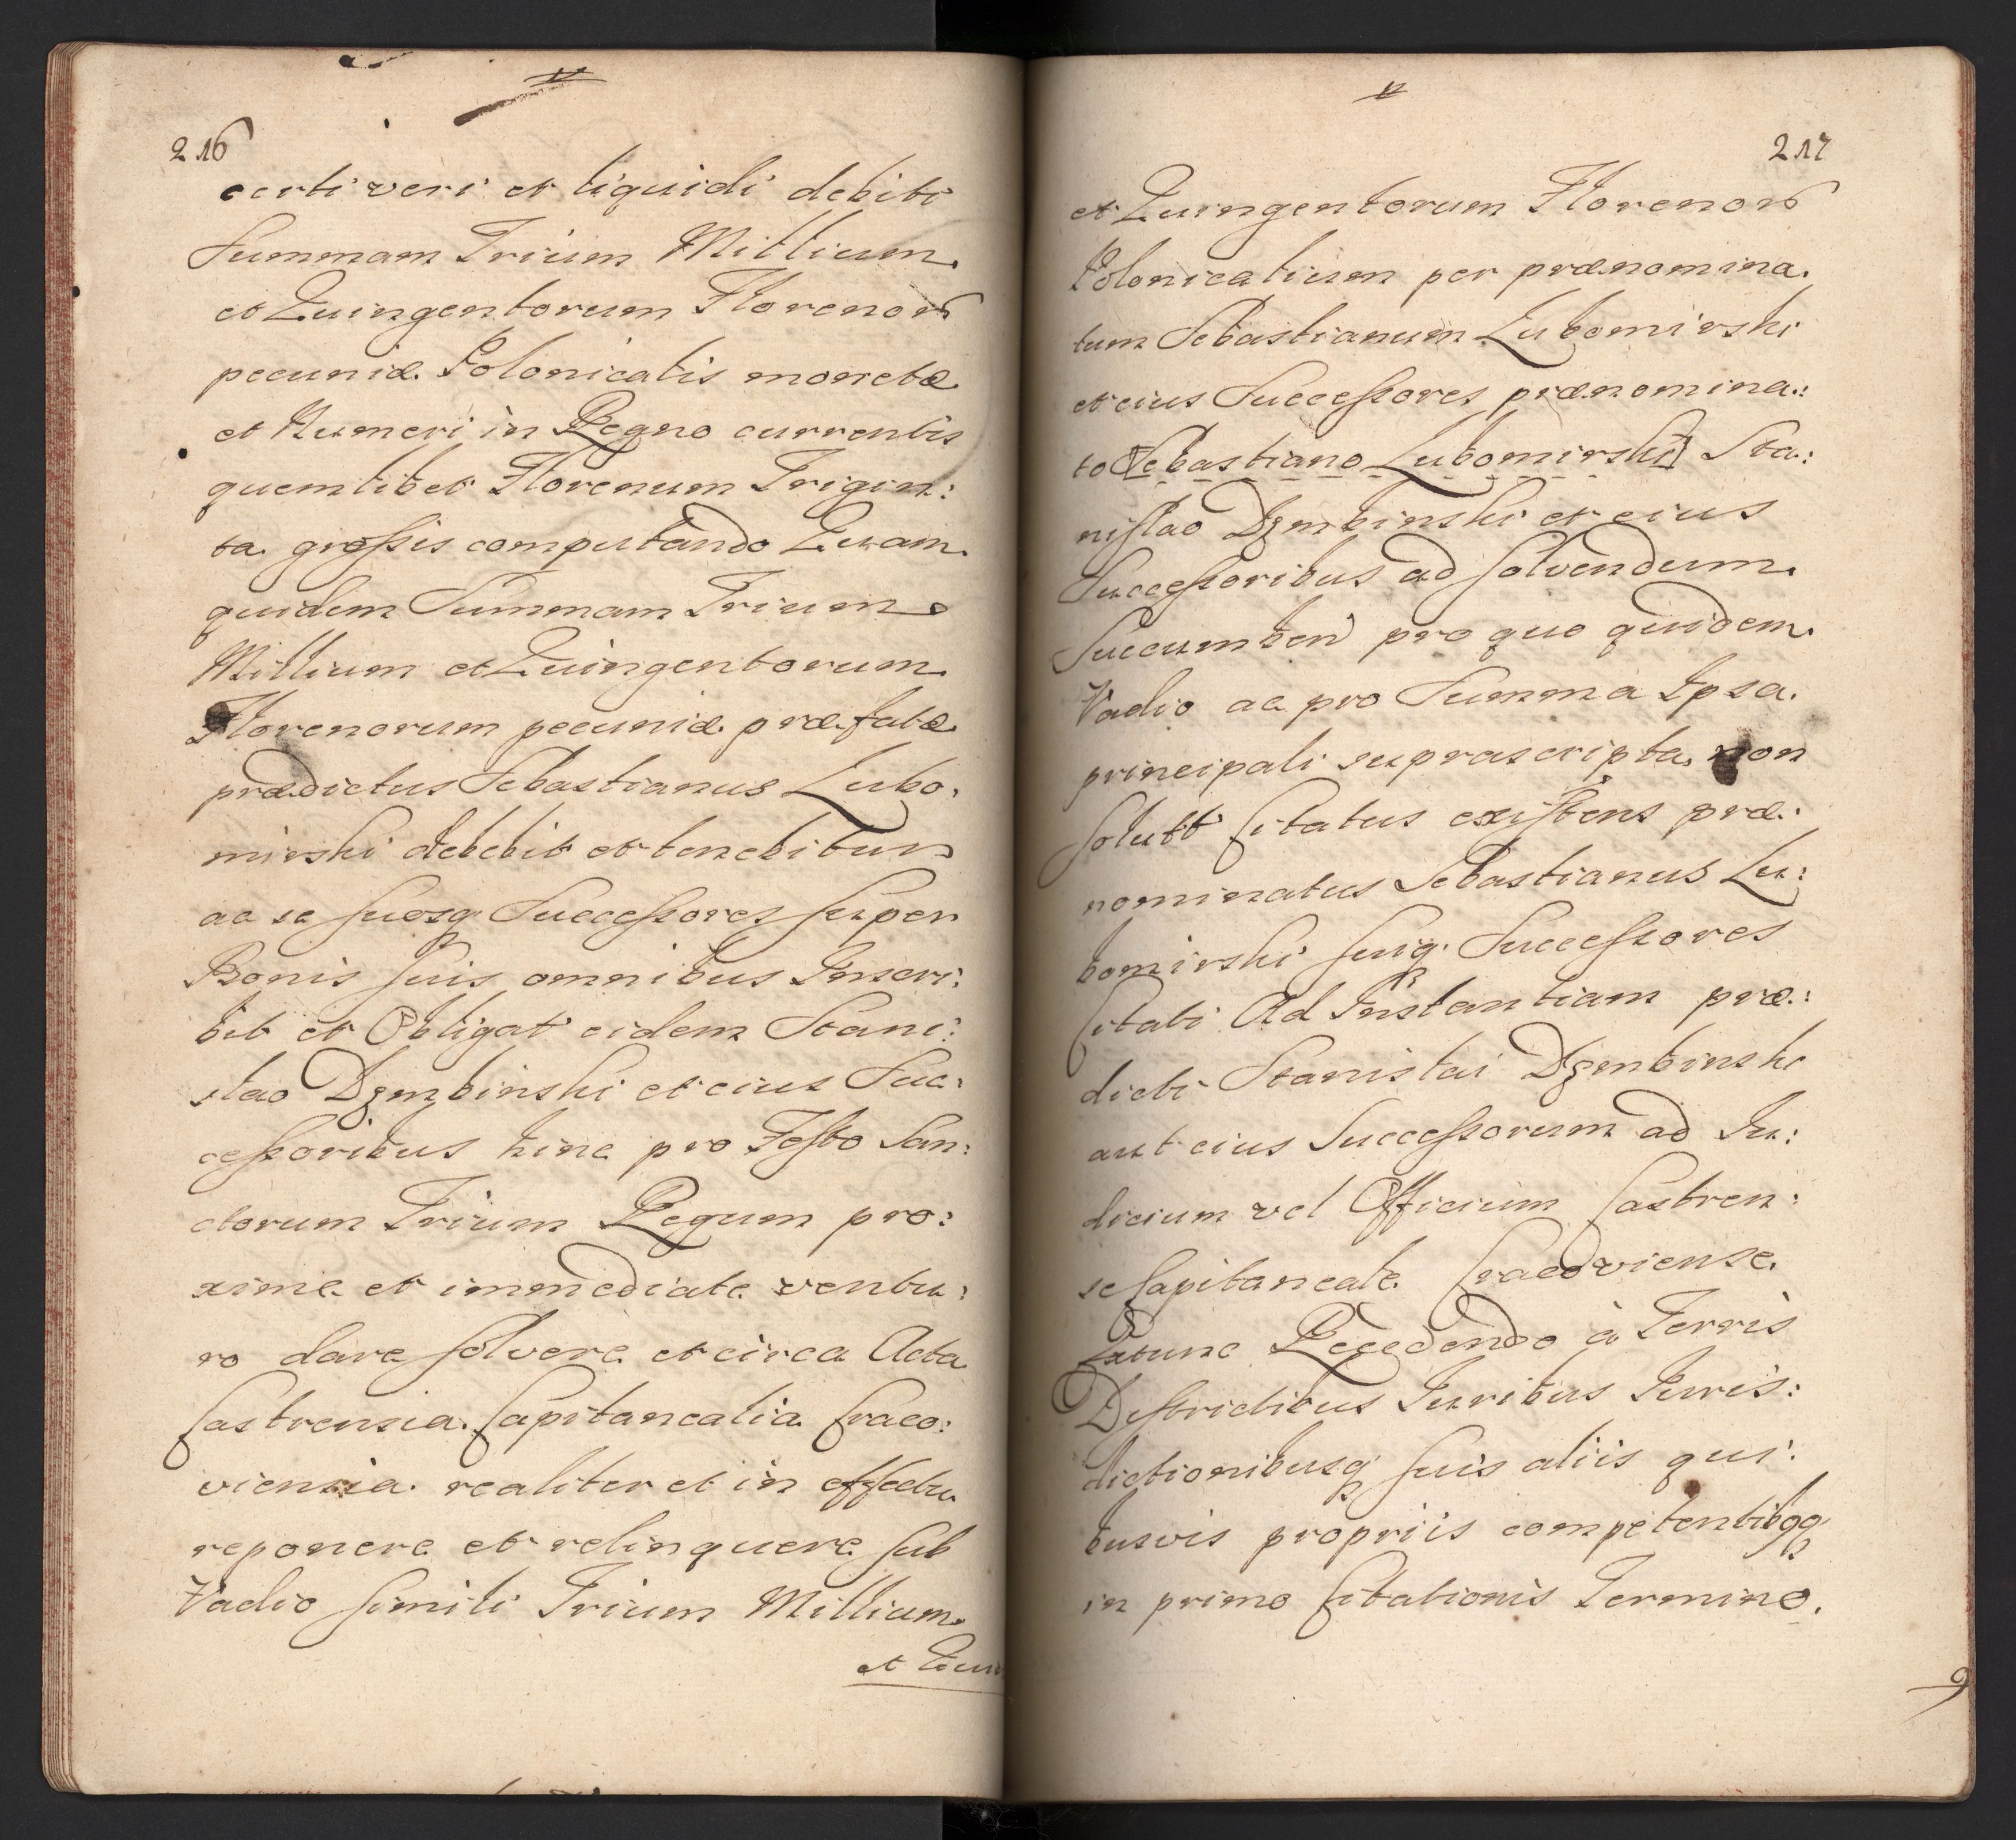 216
certi veri et liquidi debiti
Summam Trium Millium
et Quingentorum Florenor
pecuniæ Polonicalis monetæ
et Numeri in Regno currentis
quemlibet Florenum Trigin:
ta grossis computando Quam
quidem Summam Trium
Millium et Quingentorum
Florenorum pecuniæ præfatæ
prædictus Sebastianus Lubo.
mirski debebit et tenebitur
ac se suosq Successores super
Bonis suis omnibus Inscri:
bit et Obligat eidem Stani:
slao Dzmbinski et eius Suc:
cessoribus hinc pro Festo San:
ctorum Trium Regum pro:
xime et immediate ventu:
ro dare solvere et circa Acta
Castrensia Capitanealia Craco:
viensia realiter et in effectu
reponere et relinquere sub
Vadio simili Trium Millium
et Quin
217
et Quingentorum Florenor
Polonicalium per prænomina.
tum Sebastianum Lubomirski
et eius Successores prænomina:
to [Sebastiano Lubomirski] Sta:
nislao Dzmbinski et eius
Successoribus ad solvendum
Succumben pro quo quidem
Vadio ac pro Summa Ipsa
principali suprascripta non
solutt Citatus existens præ:
nominatus Sebastianus Lu:
bomirski suiq Successores
Citati Ad Instantiam præ:
dicti Stanislai Dzmbinski
aut eius Successorum ad Iu:
dicium vel Officium Castren:
se Capitaneale Cracoviense
Extunc Recedendo à Terris
Districtibus Iuribus Iuris:
dictionibusq suis aliis qui:
busvis propriis competentibqq
in primo Citationis Termino.